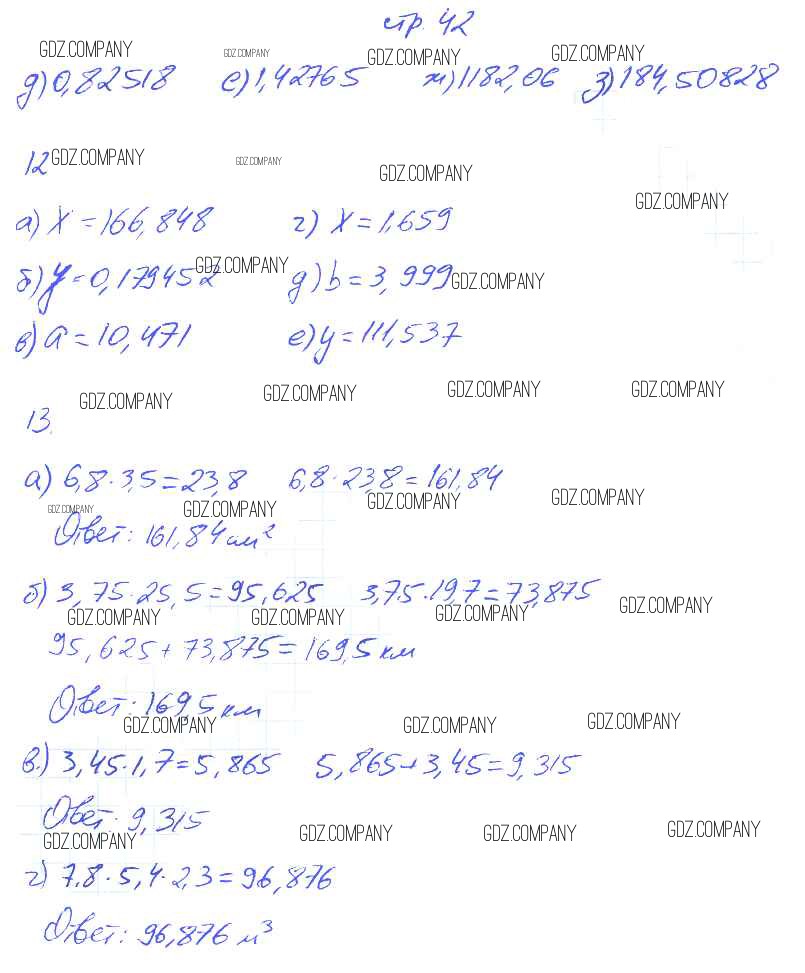 стр. 42
GDZ.COMPANY GDZ.COMPANY GDZ.COMPANY GDZ.COMPANY
д) 0,82518 е) 1,42765 ж) 1182,06 з) 184,50828
12 GDZ.COMPANY GDZ.COMPANY GDZ.COMPANY
GDZ.COMPANY
а) x = 166,848 г) x = 1,659
б) y = 0,179452 GDZ.COMPANY д) b = 3,999 GDZ.COMPANY
в) a = 10,471 е) y = 111,537
GDZ.COMPANY GDZ.COMPANY GDZ.COMPANY GDZ.COMPANY
13.
а) 6,8 · 3,5 = 23,8 6,8 · 23,8 = 161,84
GDZ.COMPANY GDZ.COMPANY GDZ.COMPANY GDZ.COMPANY
Ответ: 161,84 см²
б) 3,75 · 25,5 = 95,625 3,75 · 19,7 = 73,875
GDZ.COMPANY GDZ.COMPANY GDZ.COMPANY GDZ.COMPANY
95,625 + 73,875 = 169,5 км
Ответ: 169,5 км
GDZ.COMPANY GDZ.COMPANY GDZ.COMPANY
в.) 3,45 · 1,7 = 5,865 5,865 + 3,45 = 9,315
Ответ: 9,315
GDZ.COMPANY GDZ.COMPANY GDZ.COMPANY GDZ.COMPANY
г) 7,8 · 5,4 · 2,3 = 96,876
Ответ: 96,876 м³